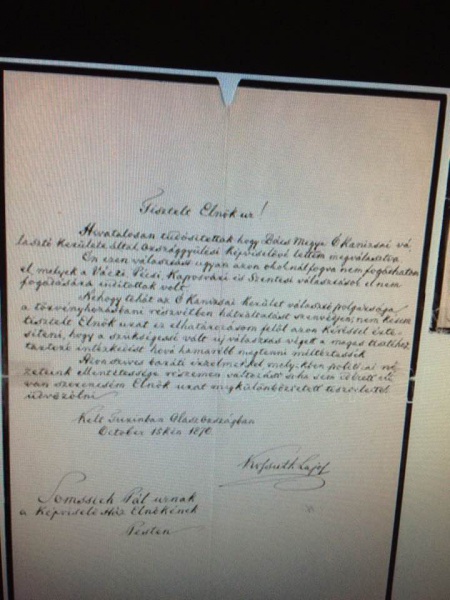 Tisztelt Elnök ur!
Hivatalosan tudósittattak hogy Bács Megye Ó Kanizsai vá
lasztó kerülete által országgyülési képviselővé lettem megválasztva
Én ezen választást ugyan azon okoknálfogva nem fogadhatom
el, melyek a Váczi Pécsi, Kaposvári és Szentesi választások el nem
fogadására inditottak volt.
Nehogy tehát az Ó Kanizsai kerület választó polgársága
a törvényhozásbani részvétben hátráltatást szenvedjen, nem késem
tisztelt Elnök urat ez elhatározásom felől azon kéréssel érte-
siteni, hogy a szükségessé vált uj választás végett a magas tisztéhez
tartozó intézkedést hova hamarébb megtenni méltóztassék
Hiven szives baráti érzelmekkel, melyekben politicai né
zeteink ellentétessége részemen változást soha sem idézett elő
van szerencsém Elnök urat megkülönböztetett tisztelettel
üdvözölni
Kelt Turinban Olaszországban
October 15kén 1870
Kossuth Lajos
Somssich Pál urnak
a Képviselő Ház Elnökének
Pesten